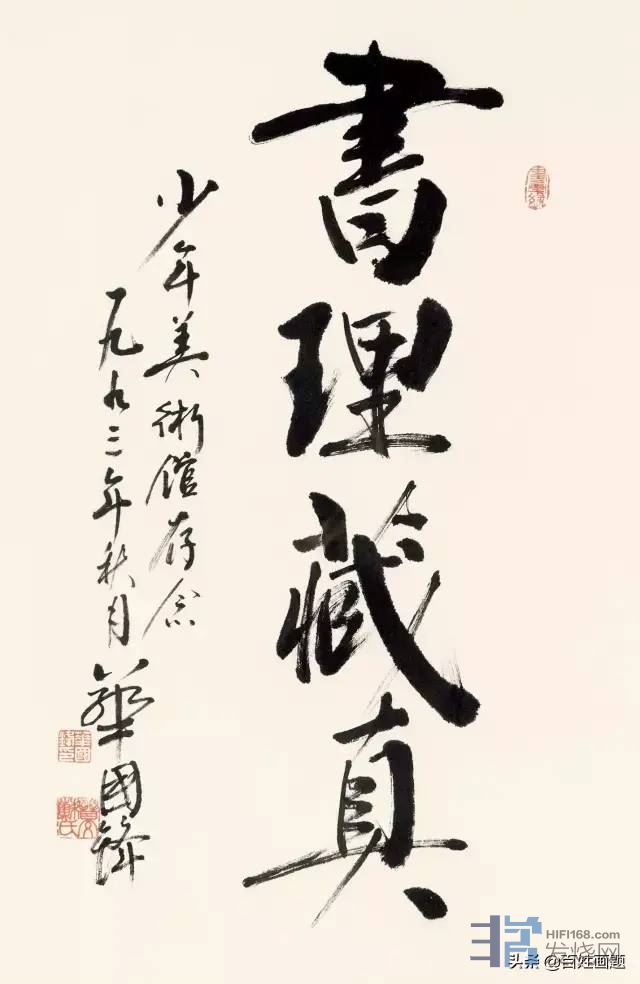 書理藏真
少年美術館存念
一九九三年秋月
華國鋒
HIFI168.com
发烧网
头条 @百姓画题